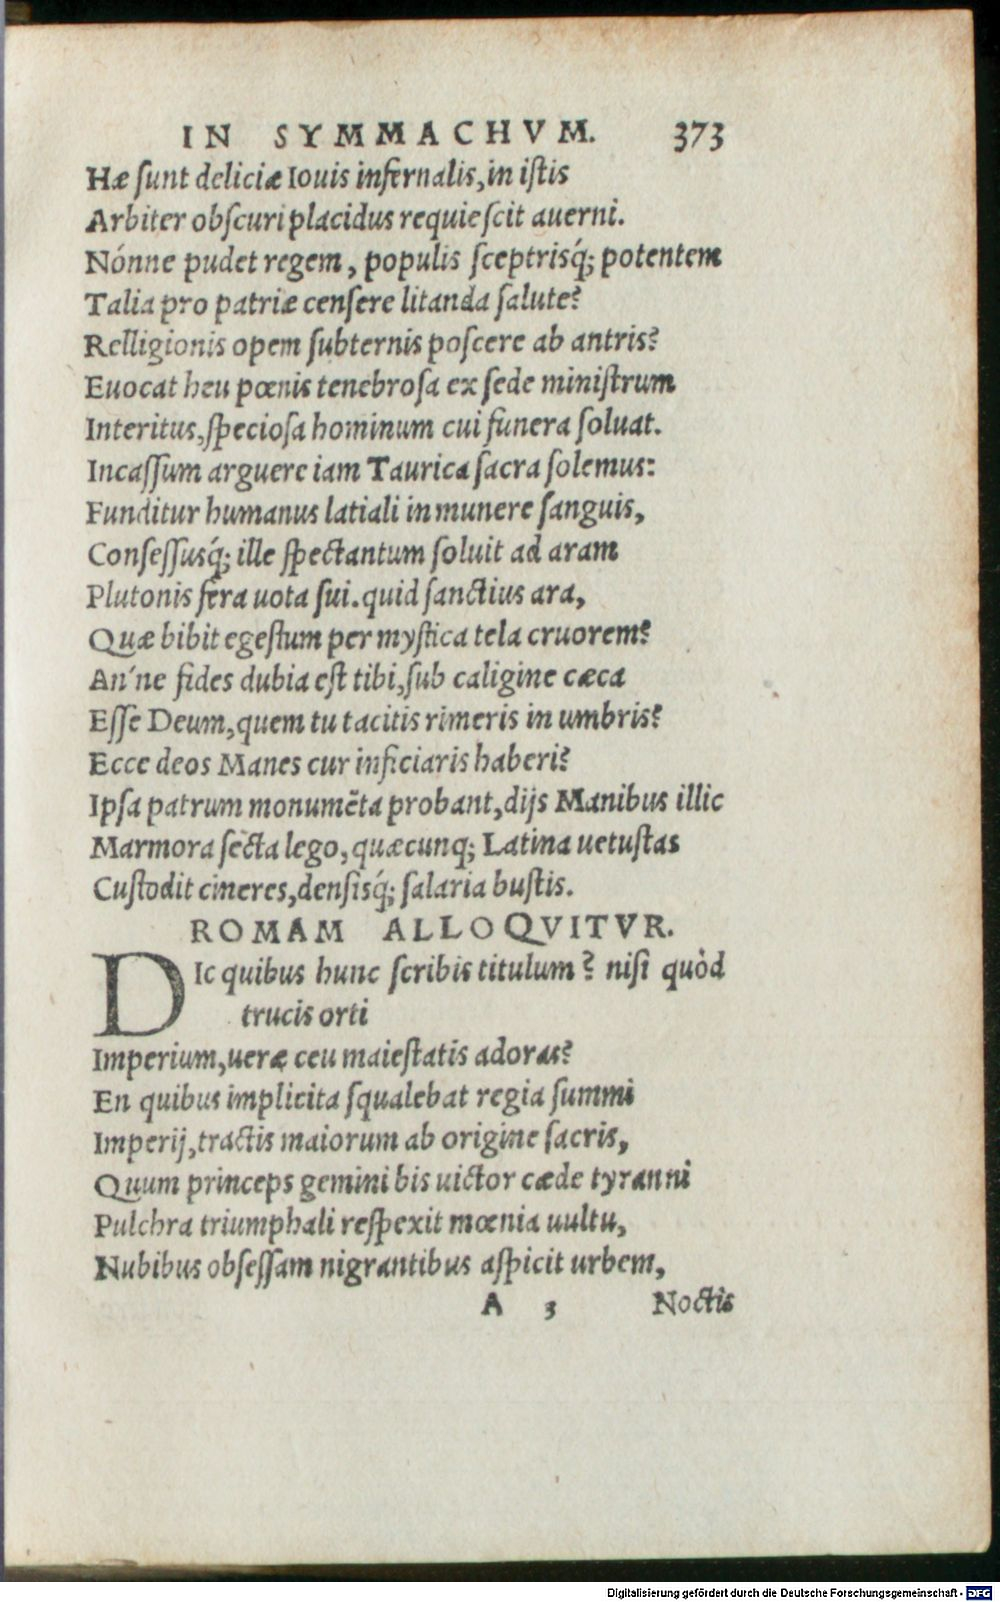 IN SYMMACHVM. 373
Hæ sunt deliciæ Iouis infernalis, in istis
Arbiter obscuri placidus requiescit auerni.
Nónne pudet regem, populis sceptrisq́; potentem
Talia pro patriæ censere litanda salute?
Relligionis opem subternis poscere ab antris?
Euocat heu pœnis tenebrosa ex sede ministrum
Interitus, speciosa hominum cui funera soluat.
Incassum arguere iam Taurica sacra solemus:
Funditur humanus latiali in munere sanguis,
Consessusq́; ille spectantum soluit ad aram
Plutonis fera uota sui. quid sanctius ara,
Quæ bibit egestum per mystica tela cruorem?
An'ne fides dubia est tibi, sub caligine cæca
Esse Deum, quem tu tacitis rimeris in umbris?
Ecce deos Manes cur inficiaris haberi?
Ipsa patrum monumẽta probant, dijs Manibus illic
Marmora secta lego, quæcunq; Latina uetustas
Custodit cineres, densisq́; salaria bustis.
ROMAM ALLOQVITVR.
DIc quibus hunc scribis titulum? nisi quòd
trucis orti
Imperium, ueræ ceu maiestatis adoras?
En quibus implicita squalebat regia summi
Imperij, tractis maiorum ab origine sacris,
Quum princeps gemini bis uictor cæde tyranni
Pulchra triumphali respexit mœnia uultu,
Nubibus obsessam nigrantibus aspicit urbem,
A 3 Noctis
Digitalisierung gefördert durch die Deutsche Forschungsgemeinschaft - DFG